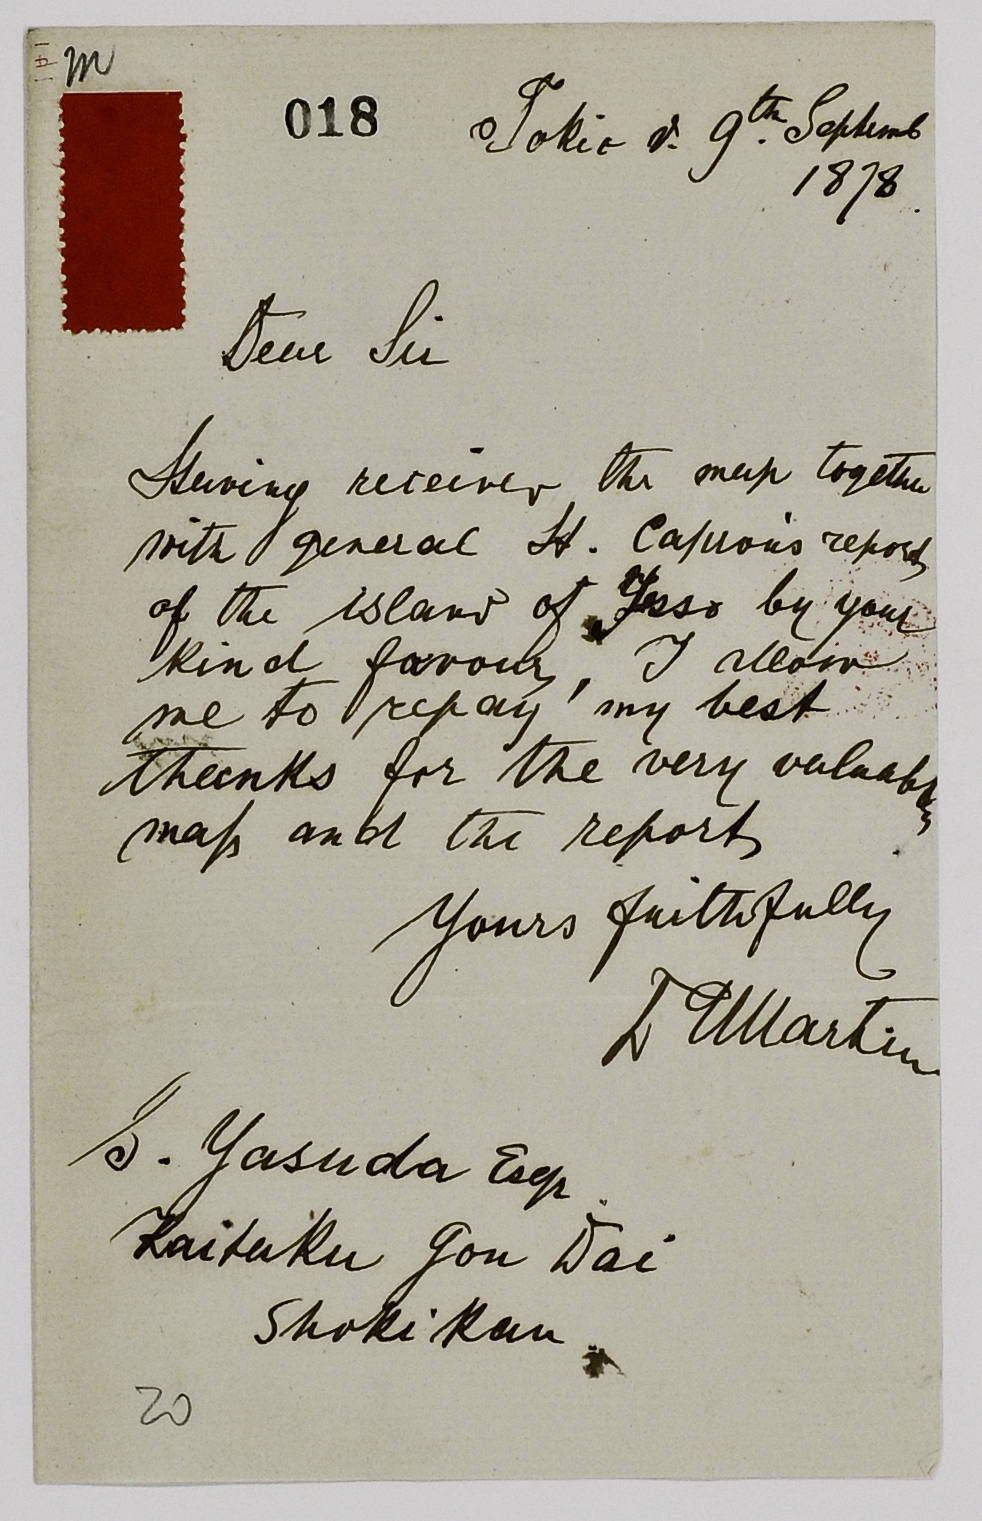 m
018
Tokio d. 9th. Septemb
1878.
Dear Sir
Having received the map together
with general H. Capron's report
of the island of Yesso by your
kind favour, I allow
me to repay my best
thanks for the very valuable
map and the report
Yours faithfully
Dr Martin
S. Yasuda Esqr.
Kaitaku Gon Dai
Shokikan.
20